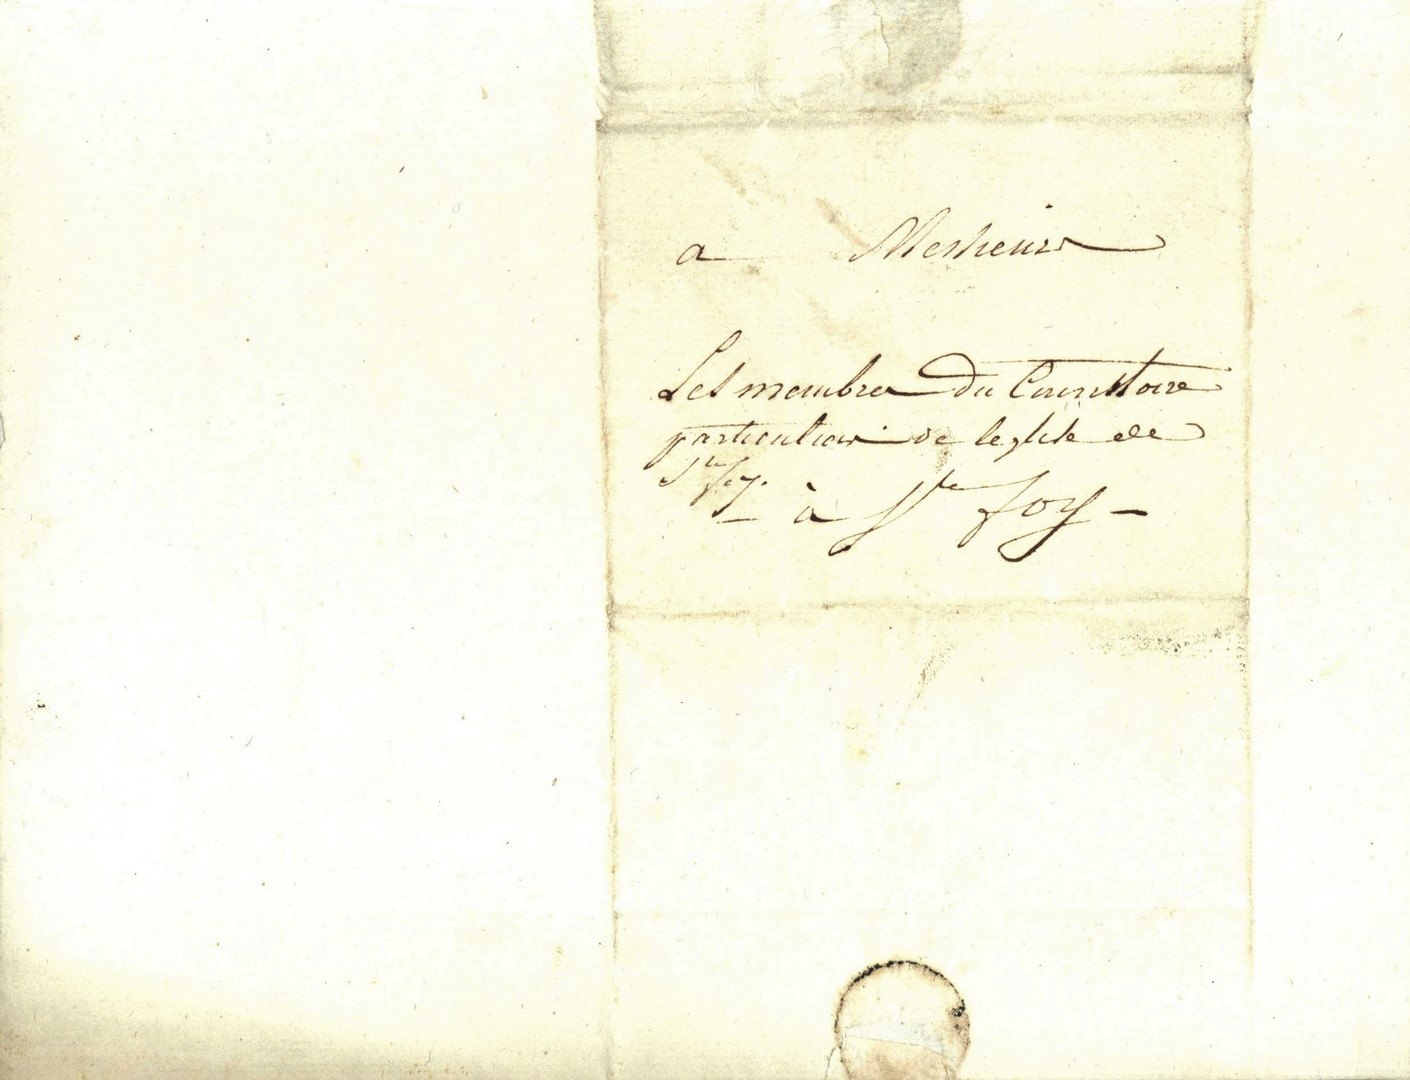 a Messieurs
Les membres du Consistoire
particulier de leglise de
Ste foy.
à Ste foy